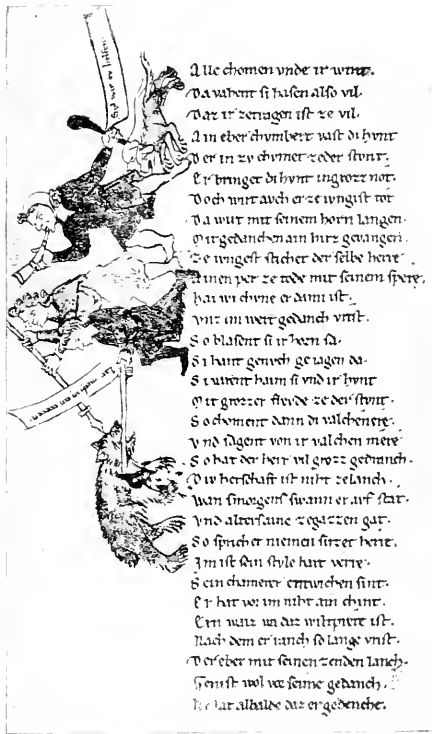 Alle chomen vnde ir wint.
Da vahent si hasen also vil.
Daz ir ze tragen ist ze vil.
Ain eber chvmbert vast di hvnt
Der in zv chvmet ze der stvnt.
Er bringet di hvnt in grozz not.
Doch wirt avch er ze ivngist tot
Da wirt mit seinem horn langen.
Mit gedanchen ain hirz gevangen.
Ze ivngest stichet der selbe herre
Ainen per ze tode mit seinem spere.
hai wi chvne er dann ist.
Vnz im wert gedanch vrist.
So blasent si ir horn sa.
Si hant genvch geiagen da.
Si varent haim si vnd ir hvnt
Mit grozzer frevde ze der stvnt.
So choment dann di valchenere.
Vnd sagent von ir valchen mere
So hat der herr vil grozz gedranch.
Div herschaft ist niht ze lanch.
Wan smorgens swann er avf stat.
Vnd alters aine ze gazzen gat.
So sprichet niemen sitzet herre.
Im ist sein style hart verre.
Sein chamerer entwichen sint.
Er hat vor im niht ain chint.
Ern waiz wa daz wiltprete ist.
Nach dem er ranch so lange vrist.
Der eber mit seinen zenden lanch.
Genist wol vor seime gedanch.
Er lat albalde daz er gedenche.